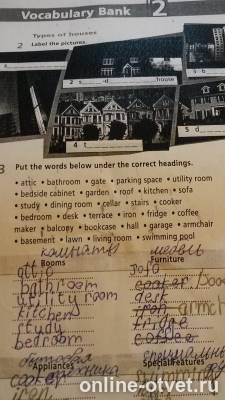 Vocabulary Bank 2
Types of houses
2 Label the pictures.
2 s -d house
4 t
5 d
3 Put the words below under the correct headings.
• attic • bathroom • gate • parking space • utility room
• bedside cabinet • garden • roof • kitchen • sofa
• study • dining room • cellar • stairs • cooker
• bedroom • desk • terrace • iron • fridge • coffee
maker • balcony • bookcase • hall • garage • armchair
• basement • lawn • living room • swimming pool
комнаты мебель
Rooms Furniture
attic sofa
bathroom cooker
utility room desk
kitchen iron armch
study fridge
bedroom coffee
бытовая техника
Appliances Special Features
cooker
iron
online-otvet.ru